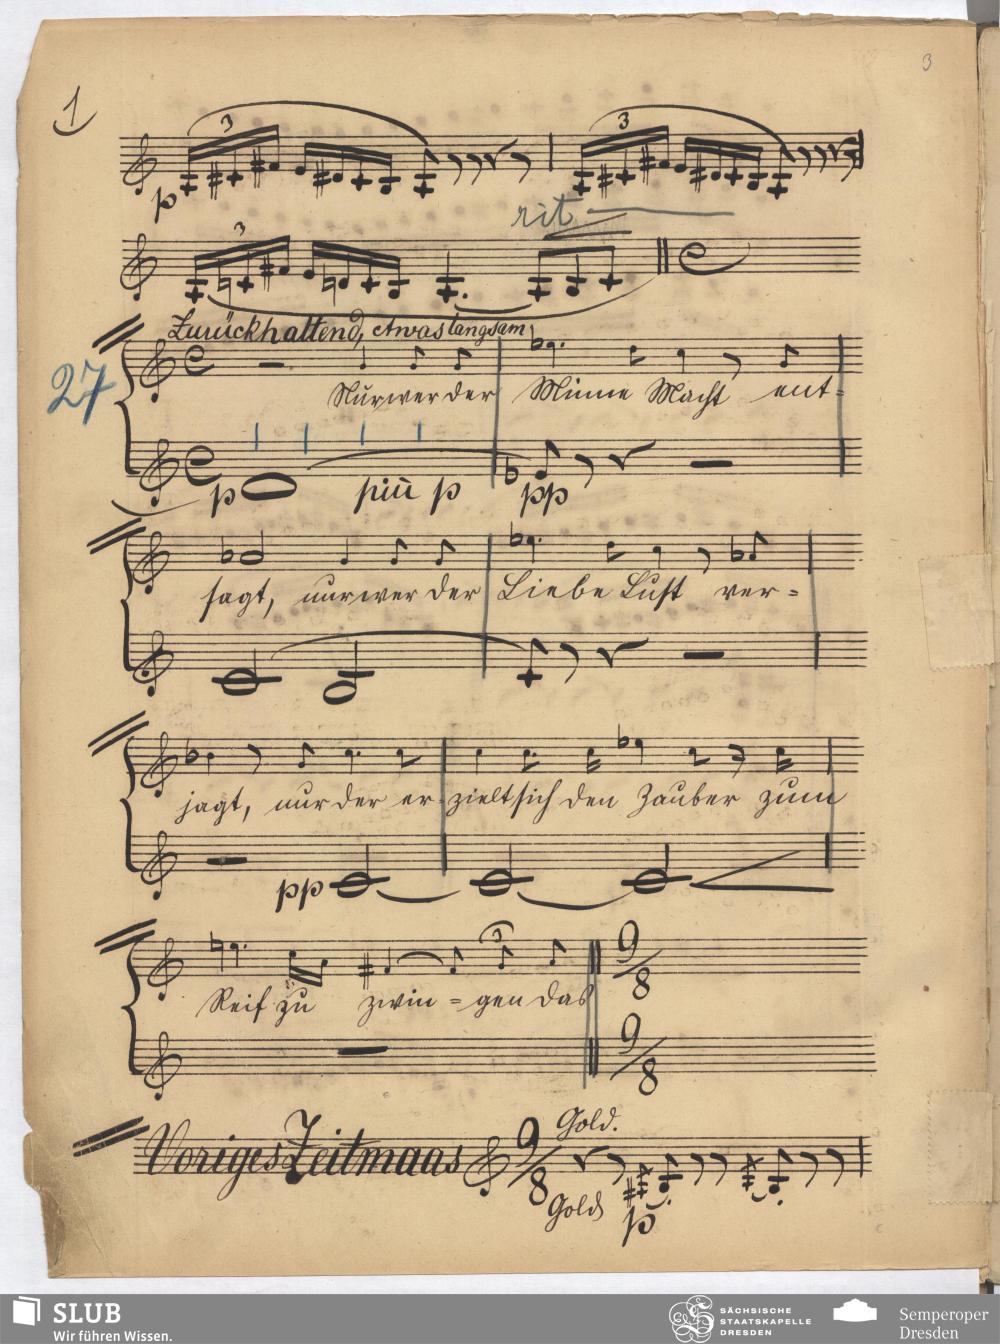 3
1
3
3
p
rit
3
Zurückhaltend, etwas langsam
27
Nur wer der Minne Macht ent=
p più p pp
sagt, nur wer der Liebe Lust ver=
jagt, nur der er=zielt sich den Zauber zum
pp
3
9/8
Reif zu zwin=gen das
9/8
Gold.
Voriges Zeitmaas 9/8
Gold
p
SLUB
Wir führen Wissen.
SÄCHSISCHE
STAATSKAPELLE
DRESDEN
Semperoper
Dresden